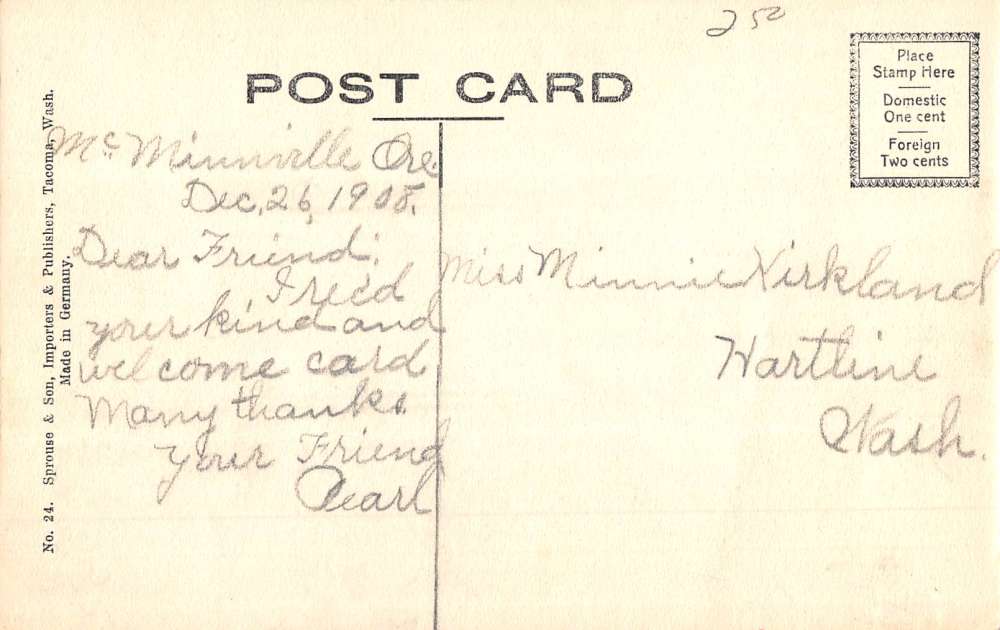 2 50
POST CARD
Place
Stamp Here
Domestic
One cent
Foreign
Two cents
No. 24. Sprouse & Son, Importers & Publishers, Tacoma, Wash.
Made in Germany.
Mc Minnville Ore.
Dec, 26, 1908.
Dear Friend:
I rec'd
your kind and
welcome card.
Many thanks.
Your Friend
Pearl
Miss Minnie Kirkland
Hartline
Wash.